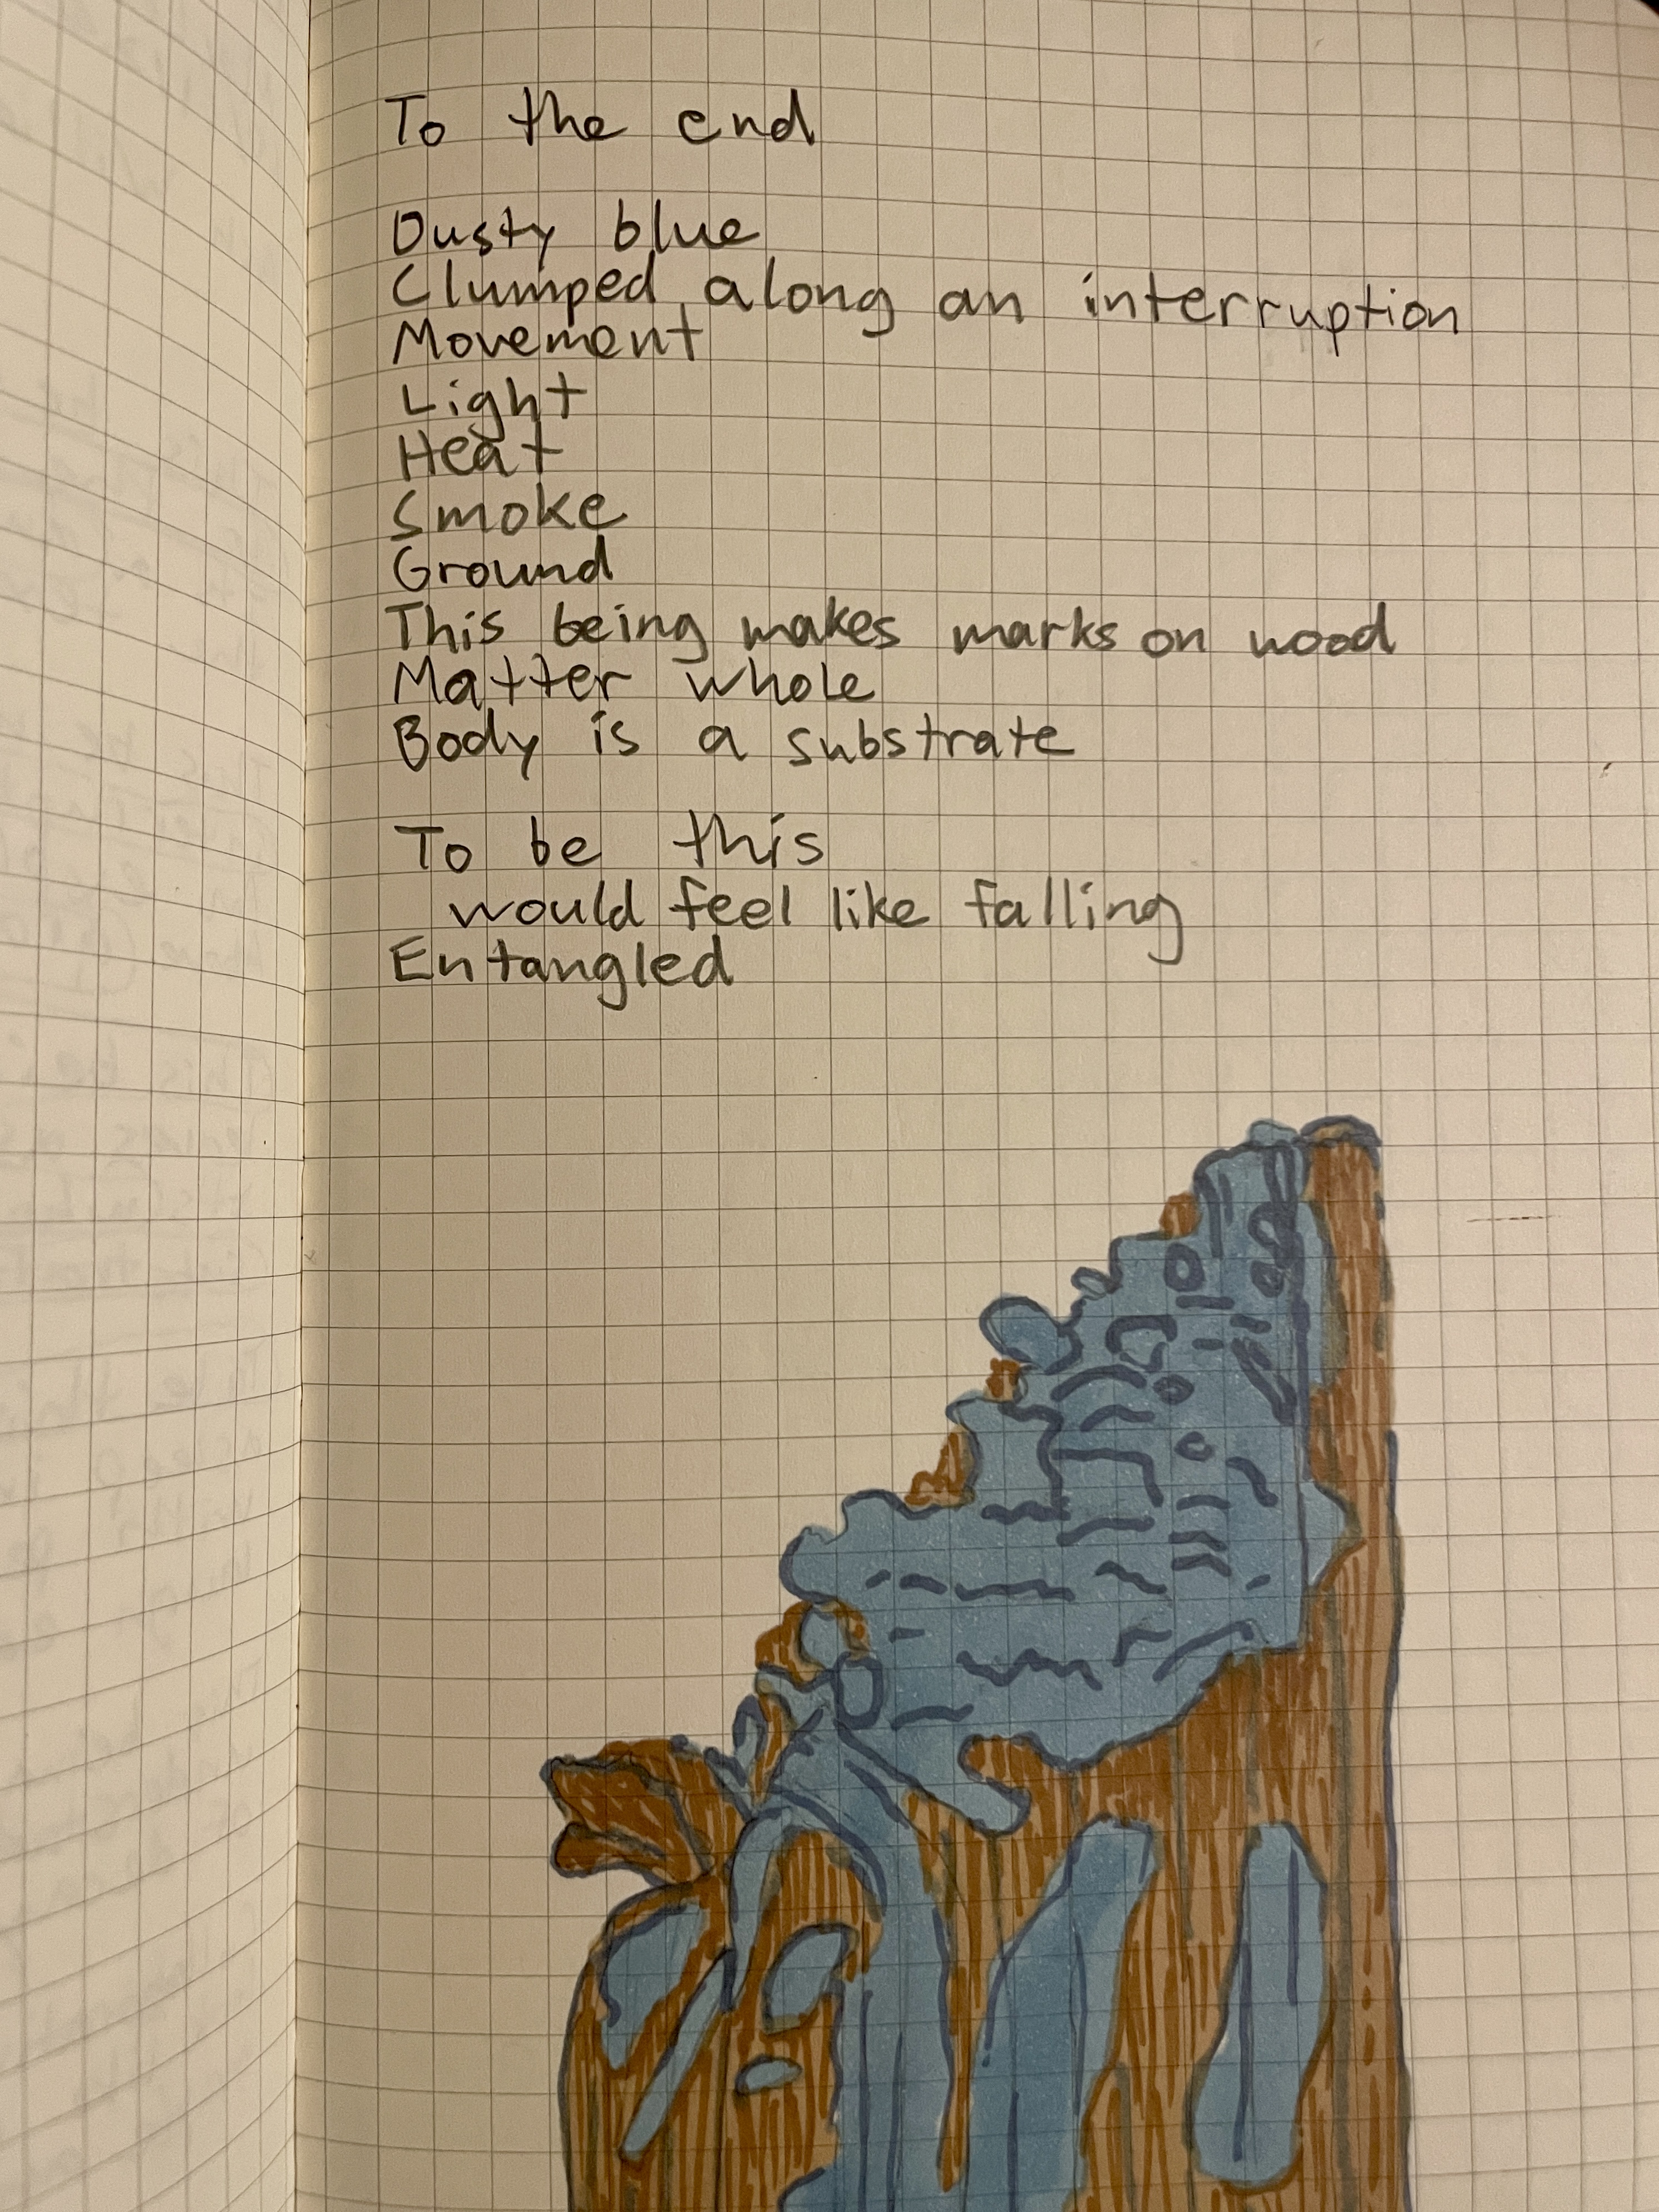 To the end
Dusty blue
Clumped along an interruption
Movement
Light
Heat
Smoke
Ground
This being makes marks on wood
Matter whole
Body is a substrate
To be this
would feel like falling
Entangled